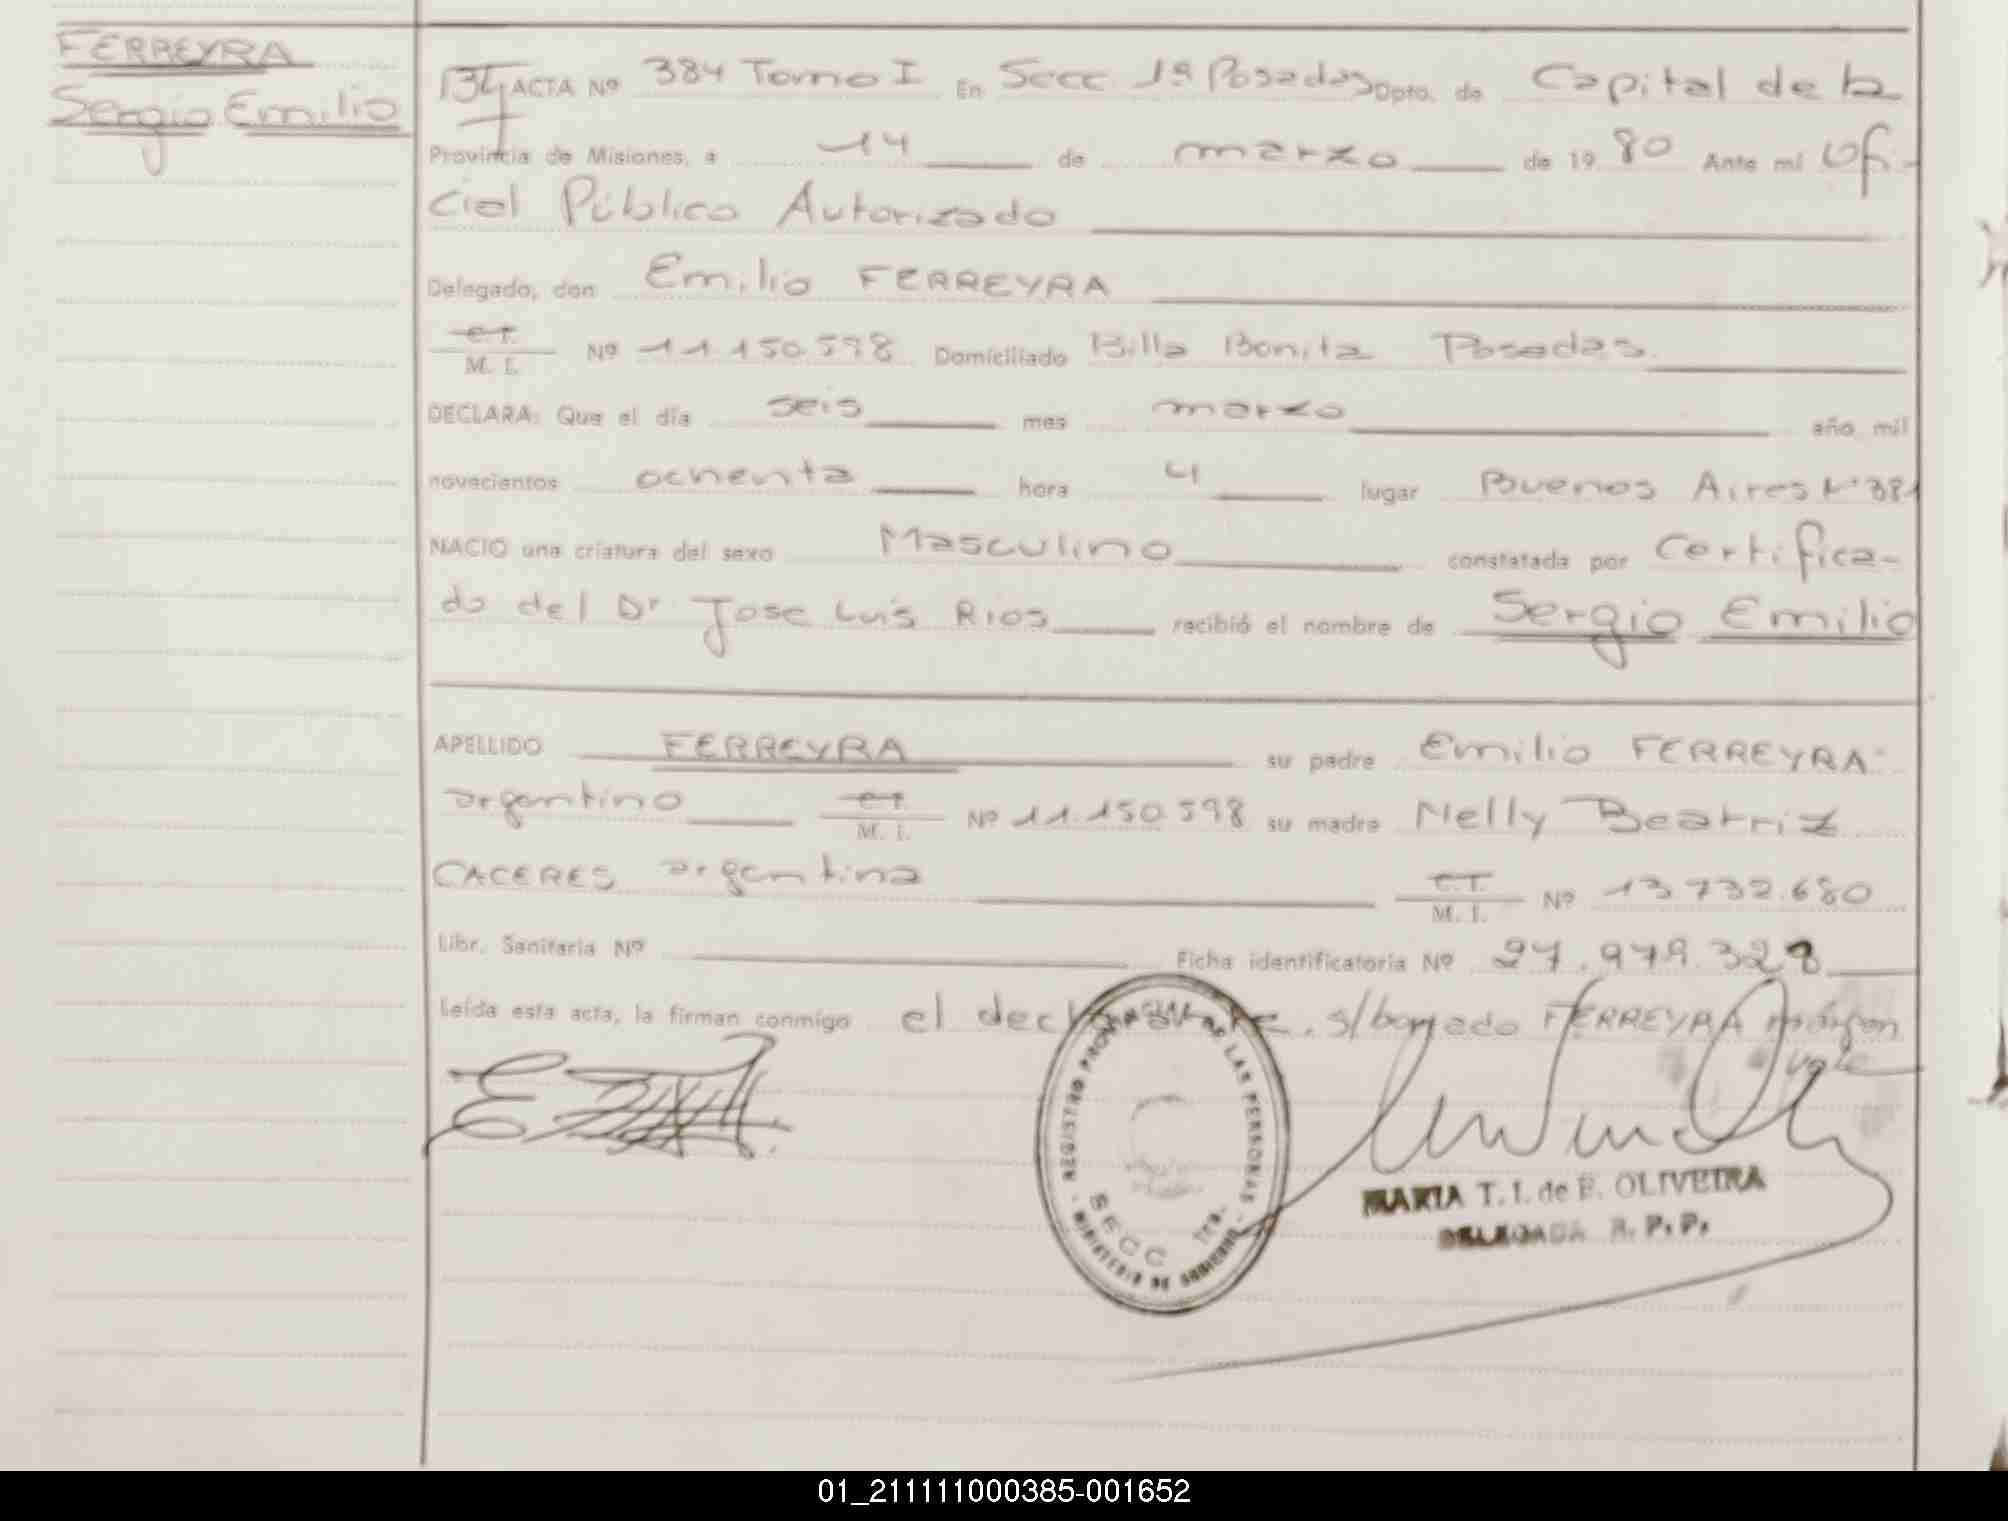 FERREYRA
Sergio Emilio
134 ACTA Nº 384 Tomo I En Secc. 1ª Posadas Dpto. de Capital de la
Provincia de Misiones, a 14 de marzo de 1980 Ante mí Ofi-
cial Público Autorizado
Delegado, don Emilio FERREYRA
C.I.
M. I. Nº 11.150.598 Domiciliado Billa Bonita Posadas.
DECLARA: Que el día seis mes marzo año mil
novecientos ochenta hora 4 lugar Buenos Aires Nº 381
NACIO una criatura del sexo Masculino constatada por Certifica-
do del Dr. Jose Luis Rios recibió el nombre de Sergio Emilio
APELLIDO FERREYRA su padre Emilio FERREYRA
argentino C.I. M. I. Nº 11.150.598 su madre Nelly Beatriz
CACERES argentina C.I. M. I. Nº 13.732.680
Libr. Sanitaria Nº Ficha identificatoria Nº 27.979.328
Leída esta acta, la firman conmigo el s/borrado FERREYRA márgen
vale
REGISTRO PROVINCIAL DE LAS PERSONAS
SECC
MINISTERIO DE GOBIERNO
MARIA T. I. de E. OLIVEIRA
DELEGADA R. P. P.
01_211111000385-001652